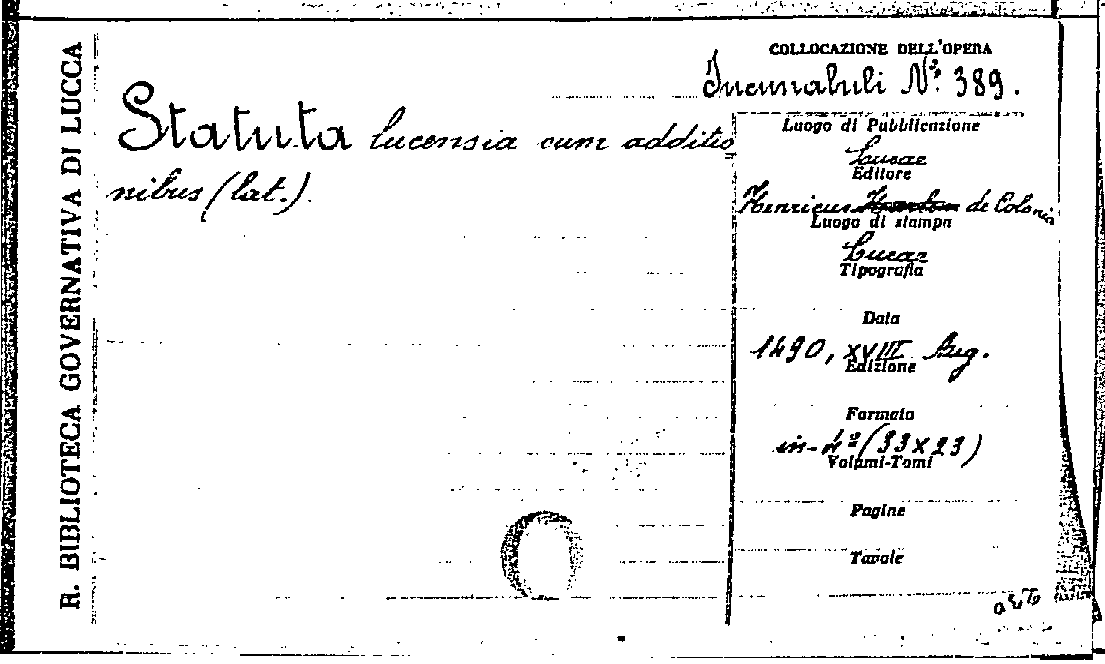 R. BIBLIOTECA GOVERNATIVA DI LUCCA
COLLOCAZIONE DELL'OPERA
Incunabuli Nº. 389.
Statuta lucensia cum additio
nibus (lat.).
Luogo di Pubblicazione
Lucae
Editore
Henricus de Colonia
Luogo di stampa
Lucae
Tipografia
Data
1490, XVIII Aug.
Edizione
Formato
in-4º (33x23)
Volumi-Tomi
Pagine
Tavole